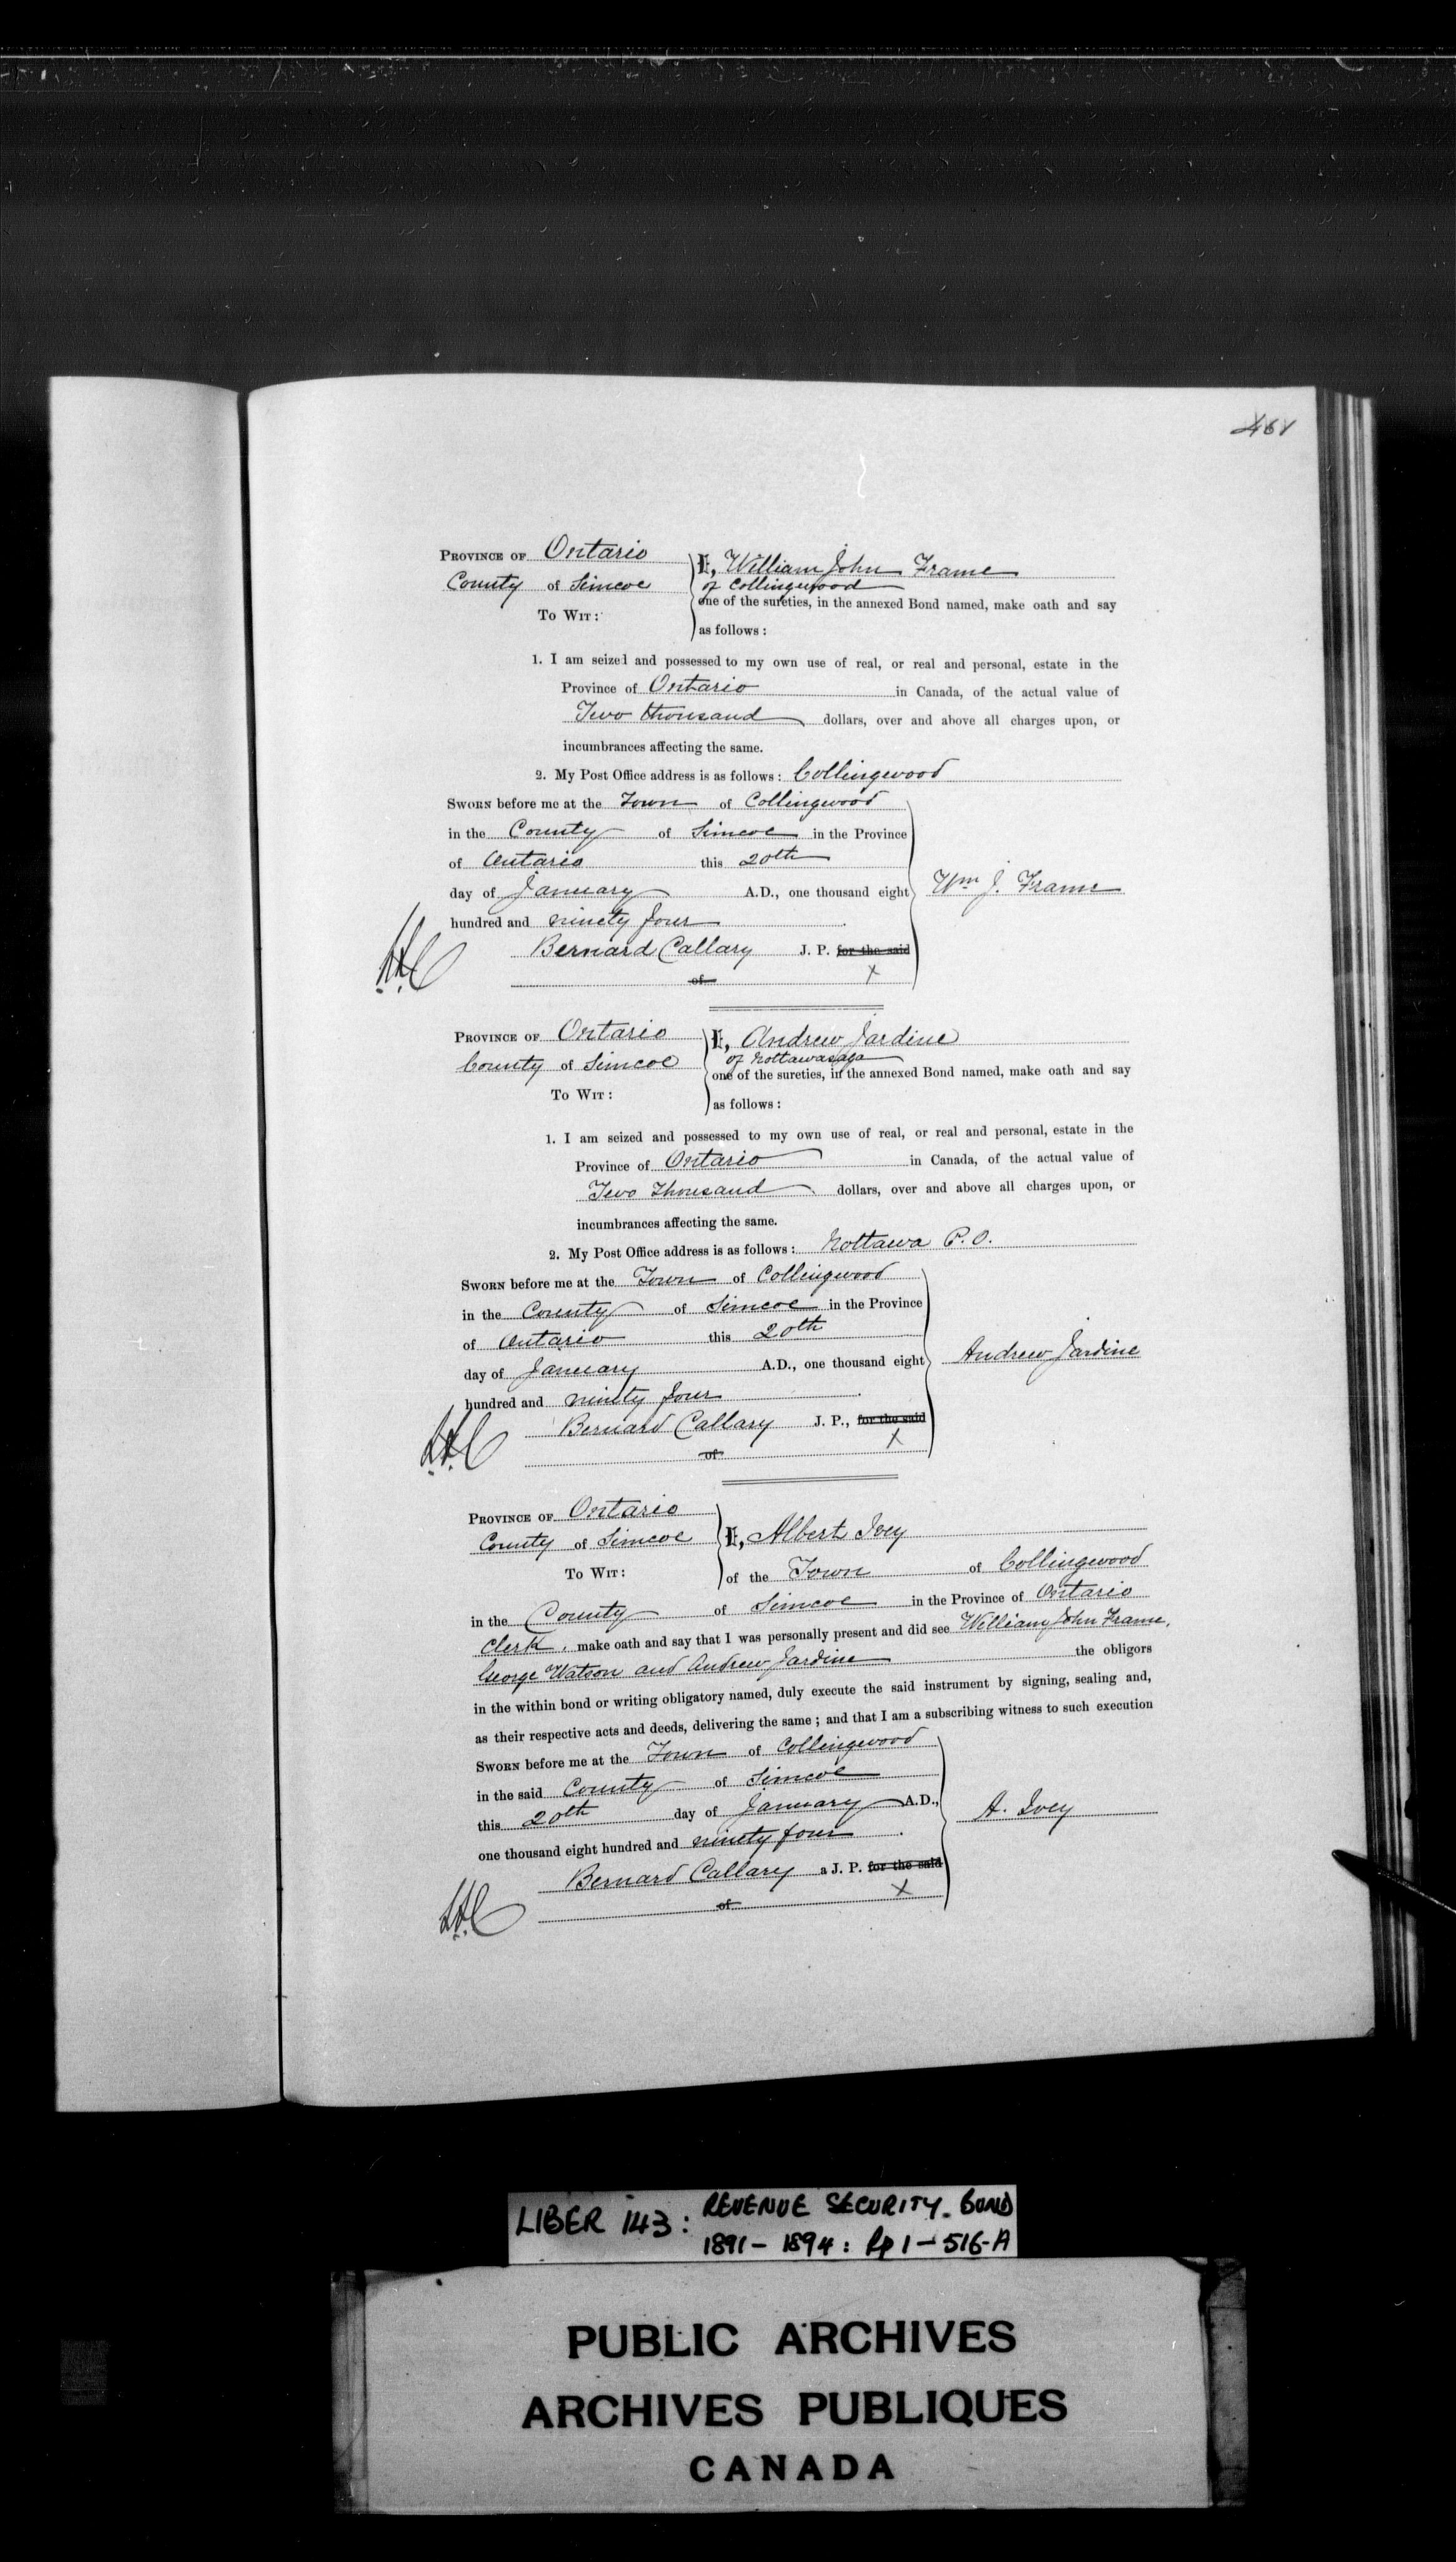 PROVINCE OF Ontario
County of Simcoe
TO WIT:
I, William John Frame
of Collingwood
one of the sureties, in the annexed Bond named, make oath and say
as follows:
1. I am seized and possessed to my own use of real, or real and personal, estate in the
Province of Ontario in Canada, of the actual value of
Two thousand dollars, over and above all charges upon, or
incumbrances affecting the same.
2. My Post Office address is as follows: Collingwood
SWORN before me at the Town of Collingwood
in the County of Simcoe in the Province
of Ontario this 20th
day of January A.D., one thousand eight
hundred and ninety four
Wm J. Frame
Bernard Callary J. P. for the said
of X
PROVINCE OF Ontario
County of Simcoe
TO WIT:
I, Andrew Jardine
of Nottawasaga
one of the sureties, in the annexed Bond named, make oath and say
as follows:
1. I am seized and possessed to my own use of real, or real and personal, estate in the
Province of Ontario in Canada, of the actual value of
Two thousand dollars, over and above all charges upon, or
incumbrances affecting the same.
2. My Post Office address is as follows: Nottawa P.O.
SWORN before me at the Town of Collingwood
in the County of Simcoe in the Province
of Ontario this 20th
day of January A.D., one thousand eight
hundred and ninety four
Andrew Jardine
Bernard Callary J. P., for the said
of X
PROVINCE OF Ontario
County of Simcoe
TO WIT:
I, Albert Ivey
of the Town of Collingwood
in the County of Simcoe in the Province of Ontario
Clerk, make oath and say that I was personally present and did see William John Frame,
George Watson and Andrew Jardine the obligors
in the within bond or writing obligatory named, duly execute the said instrument by signing, sealing and,
as their respective acts and deeds, delivering the same; and that I am a subscribing witness to such execution
SWORN before me at the Town of Collingwood
in the said County of Simcoe
this 20th day of January A.D.,
one thousand eight hundred and ninety four
A. Ivey
Bernard Callary a J. P. for the said
of X
LIBER 143: REVENUE SECURITY BOND
1891-1894: Pp 1-516-A
PUBLIC ARCHIVES
ARCHIVES PUBLIQUES
CANADA